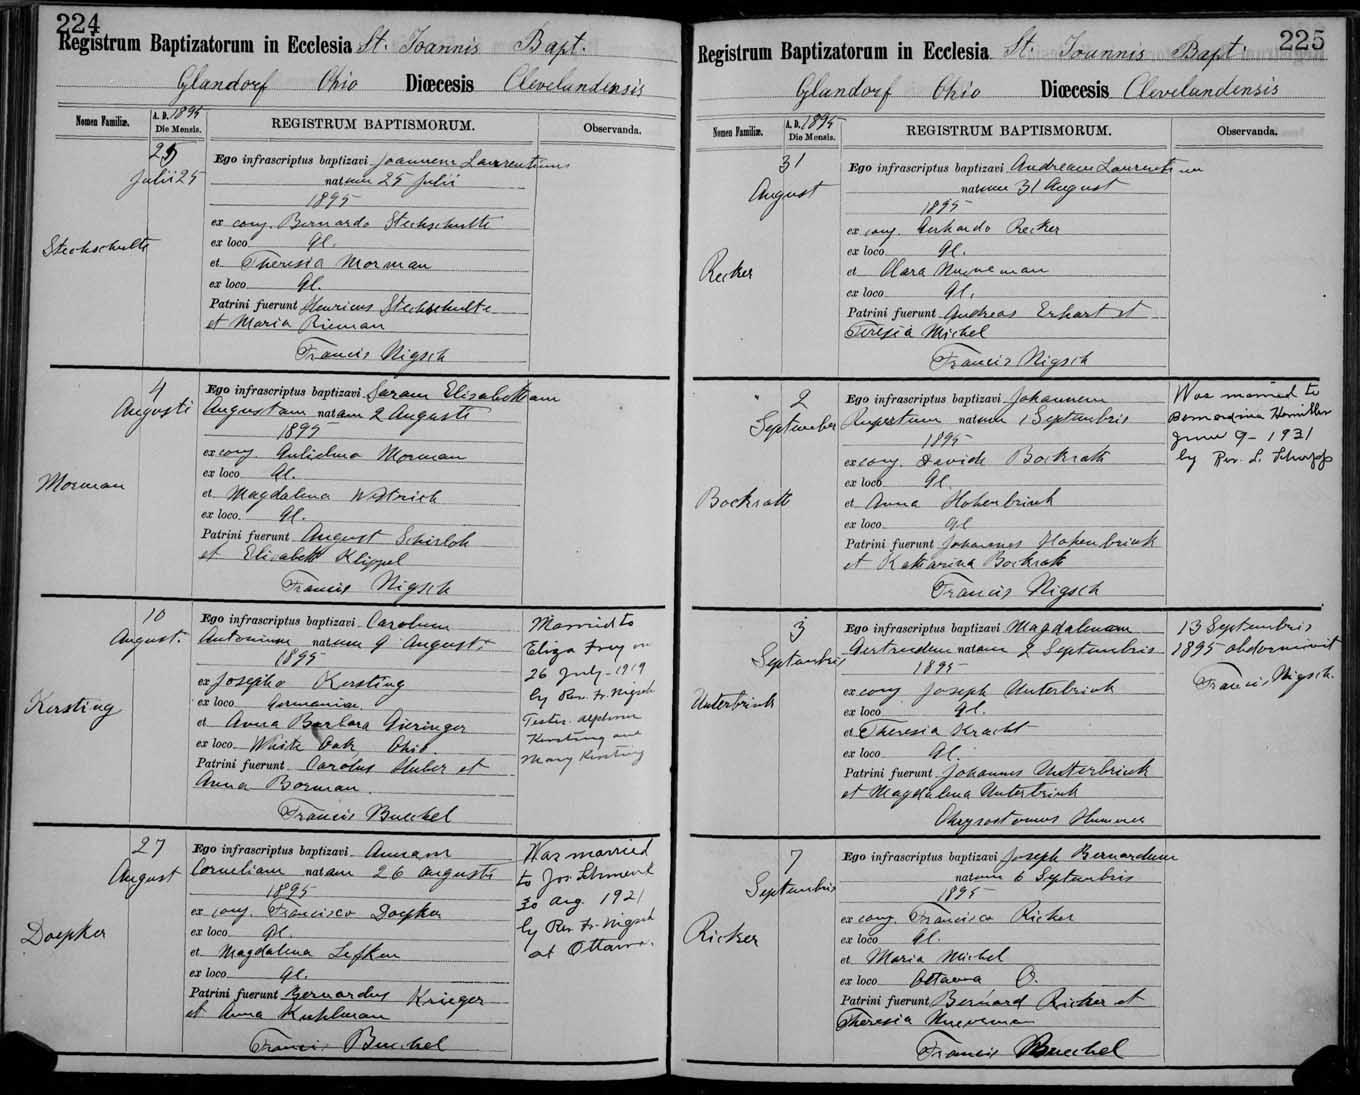 224
Registrum Baptizatorum in Ecclesia St. Joannis Bapt.
Glandorf Ohio Diœcesis Clevelandensis
Nomen Familiæ.
A. D. 1895
Die Mensis.
REGISTRUM BAPTISMORUM.
Observanda.
25
Julii 25
Stechschulte
Ego infrascriptus baptizavi Joannem Laurentium
natum 25 Julii
1895
ex conj. Bernardo Stechschulte
ex loco Gl.
et Theresia Morman
ex loco Gl.
Patrini fuerunt Henricus Stechschulte
et Maria Rieman
Francis Nigsch
4
Augusti
Morman
Ego infrascriptus baptizavi Saram Elisabetham
Augustam natam 2 Augusti
1895
ex conj. Gulielmo Morman
ex loco Gl.
et Magdalena Wistrich
ex loco Gl.
Patrini fuerunt August Schirloh
et Elisabeth Klippel
Francis Nigsch
10
August.
Kersting
Ego infrascriptus baptizavi Carolum
Antonium natum 9 Augusti
1895
ex Josepho Kersting
ex loco Germaniae
et Anna Barbara Gieringer
ex loco White Oak, Ohio.
Patrini fuerunt Carolus Huber et
Anna Borman.
Francis Buechel
Married to
Eliza Frey on
26 July - 1919
by Rev. Fr. Nigsch
Testes. Alphons
Kersting and
Mary Kersting
27
August
Doepker
Ego infrascriptus baptizavi Annam
Corneliam natam 26 Augusti
1895
ex conj. Francisco Doepker
ex loco Gl.
et Magdalena Lefken
ex loco Gl.
Patrini fuerunt Bernardus Krieger
et Anna Kuhlman
Francis Buechel
Was married
to Jos.
30 Aug. 1921
by Rev. Fr. Nigsch
at Ottawa.
225
Registrum Baptizatorum in Ecclesia St. Joannis Bapt.
Glandorf Ohio Diœcesis Clevelandensis
Nomen Familiæ.
A. D. 1895
Die Mensis.
REGISTRUM BAPTISMORUM.
Observanda.
31
August
Recker
Ego infrascriptus baptizavi Andream Laurentium
natum 31 August
1895
ex conj. Gerhardo Recker
ex loco Gl.
et Clara Nueneman
ex loco Gl.
Patrini fuerunt Andreas Erhart et
Teresia Michel
Francis Nigsch
2
September
Bockrath
Ego infrascriptus baptizavi Johannem
Rupertum natum 1 Septembris
1895
ex conj. Davide Bockrath
ex loco Gl.
et Anna Hohenbrink
ex loco Gl
Patrini fuerunt Johannes Hohenbrink
et Katharina Bockrath
Francis Nigsch
Was married to
Bernardina
June 9 - 1931
by Rev. L. Schropp
3
Septembris
Unterbrink
Ego infrascriptus baptizavi Magdalenam
Gertrudem natam 2 Septembris
1895
ex conj Joseph Unterbrink
ex loco Gl.
et Theresia Kracht
ex loco Gl.
Patrini fuerunt Johannes Unterbrink
et Magdalena Unterbrink
Chrysostomus Hummer
13 Septembris
1895 obdormivit
Francis Nigsch.
7
Septembris
Ricker
Ego infrascriptus baptizavi Joseph Bernardum
natum 6 Septembris
1895
ex conj. Francisco Ricker
ex loco Gl.
et Maria Michel
ex loco Ottawa O.
Patrini fuerunt Bernard Ricker et
Theresia Nueneman
Francis Buechel